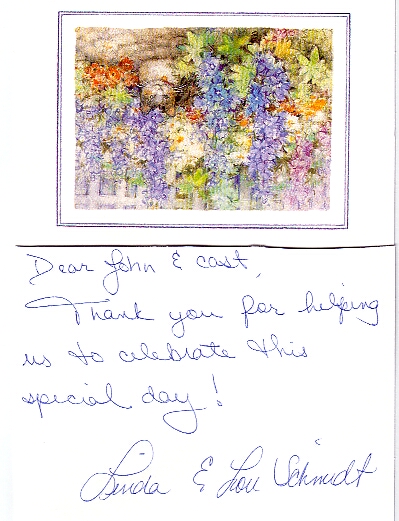 Dear John & cast,
Thank you for helping
us to celebrate this
special day!
Linda & Lou Schmidt